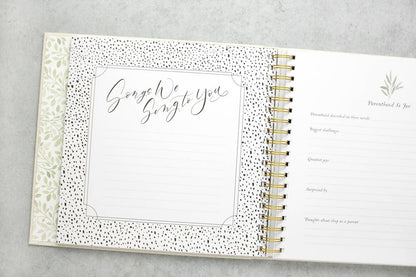 Songs We
Sang to You
Parenthood Is Joy
Parenthood described in three words
Biggest challenges
Greatest joys
Surprised by
Thoughts about sleep as a parent